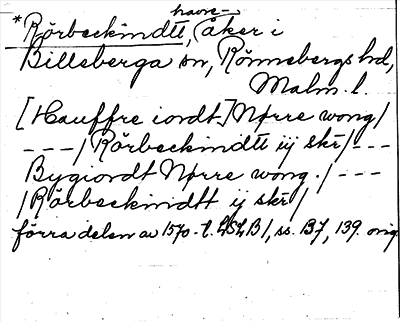 *Rörbeckindtt, havre-åker i
Billeberga sn, Rönnebergs hd,
Malm. l.
[Hauffre iordt] Nørre wong/
---/ Rörbeckindtt iij skr/---
Bygiordt Nørre wong./---
/Rörbeckindtt ij skr/
förra delen av 1570-t. LSLB1, ss. B7, 139. orig.